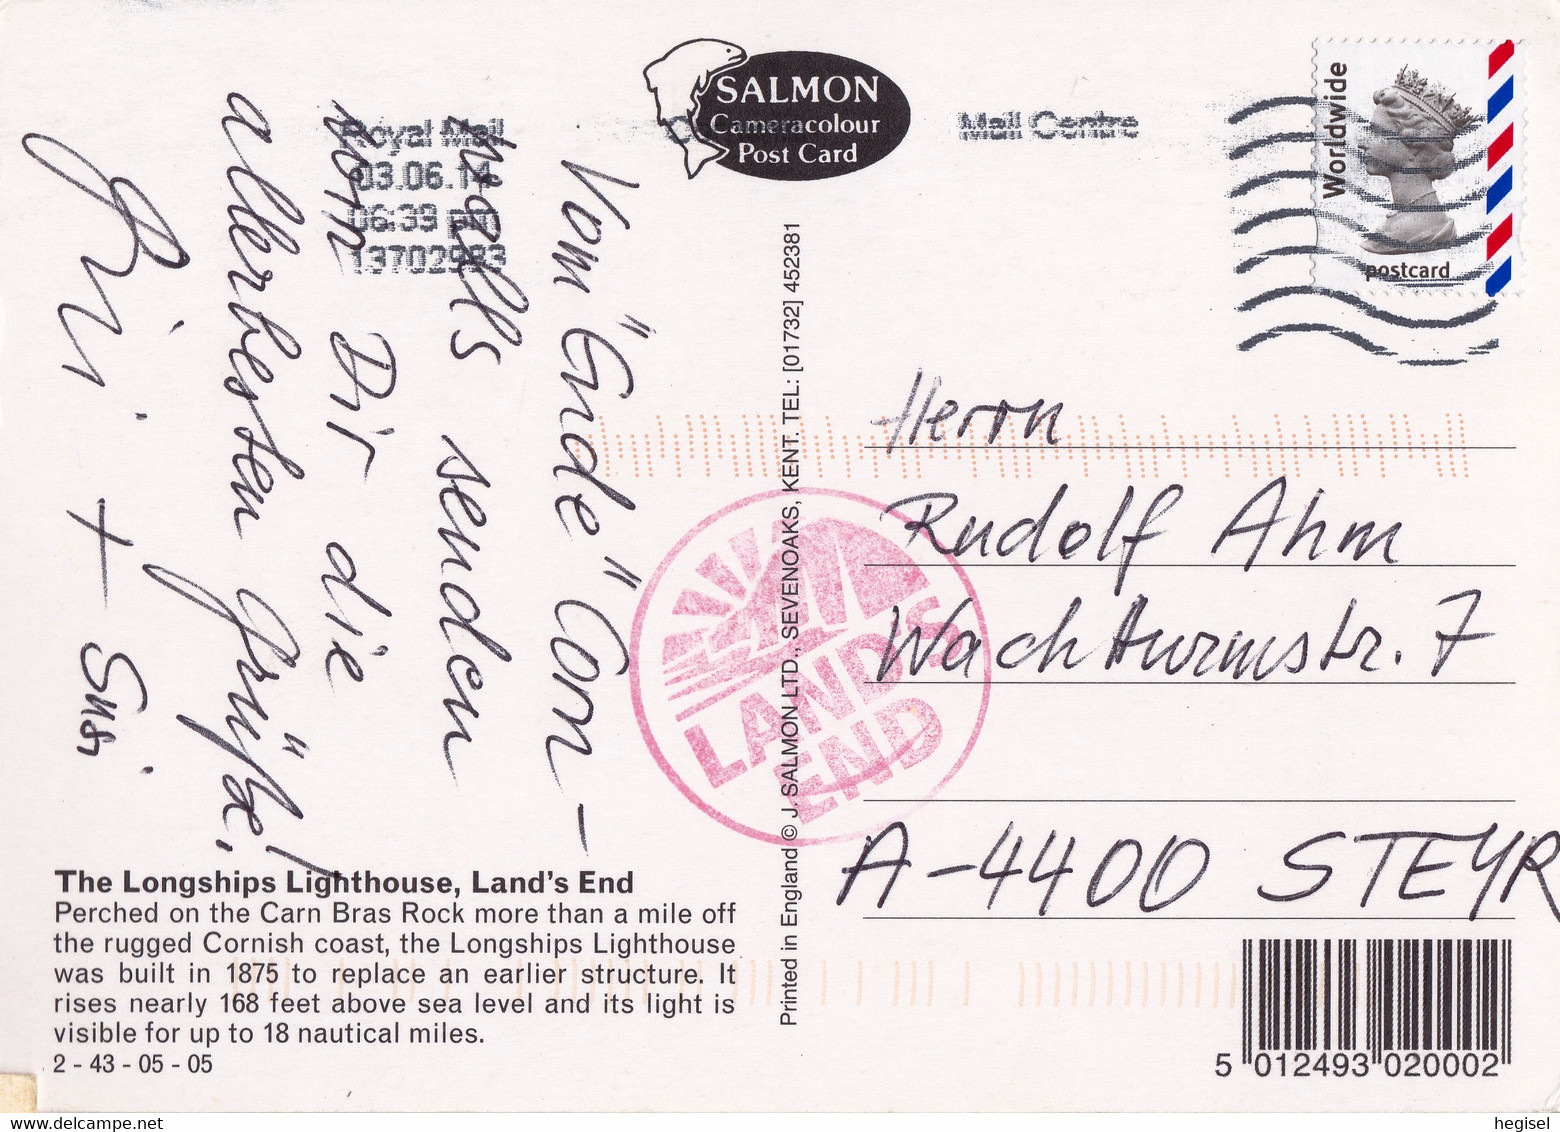 SALMON
Cameracolour
Post Card
Royal Mail
03.06.14
06:39 pm
13702983
Mail Centre
Worldwide
postcard
Vom "Ende" Corn-
walls senden
wir Dir die
allerbesten Grüße!
+ Susi
LAND'S
END
Printed in England © J. SALMON LTD., SEVENOAKS, KENT. TEL: [01732] 452381
Herrn
Rudolf Ahm
Wachtturmstr. 7
A-4400 STEYR
The Longships Lighthouse, Land's End
Perched on the Carn Bras Rock more than a mile off
the rugged Cornish coast, the Longships Lighthouse
was built in 1875 to replace an earlier structure. It
rises nearly 168 feet above sea level and its light is
visible for up to 18 nautical miles.
2 - 43 - 05 - 05
5 012493 020002
hegisel
www.delcampe.net